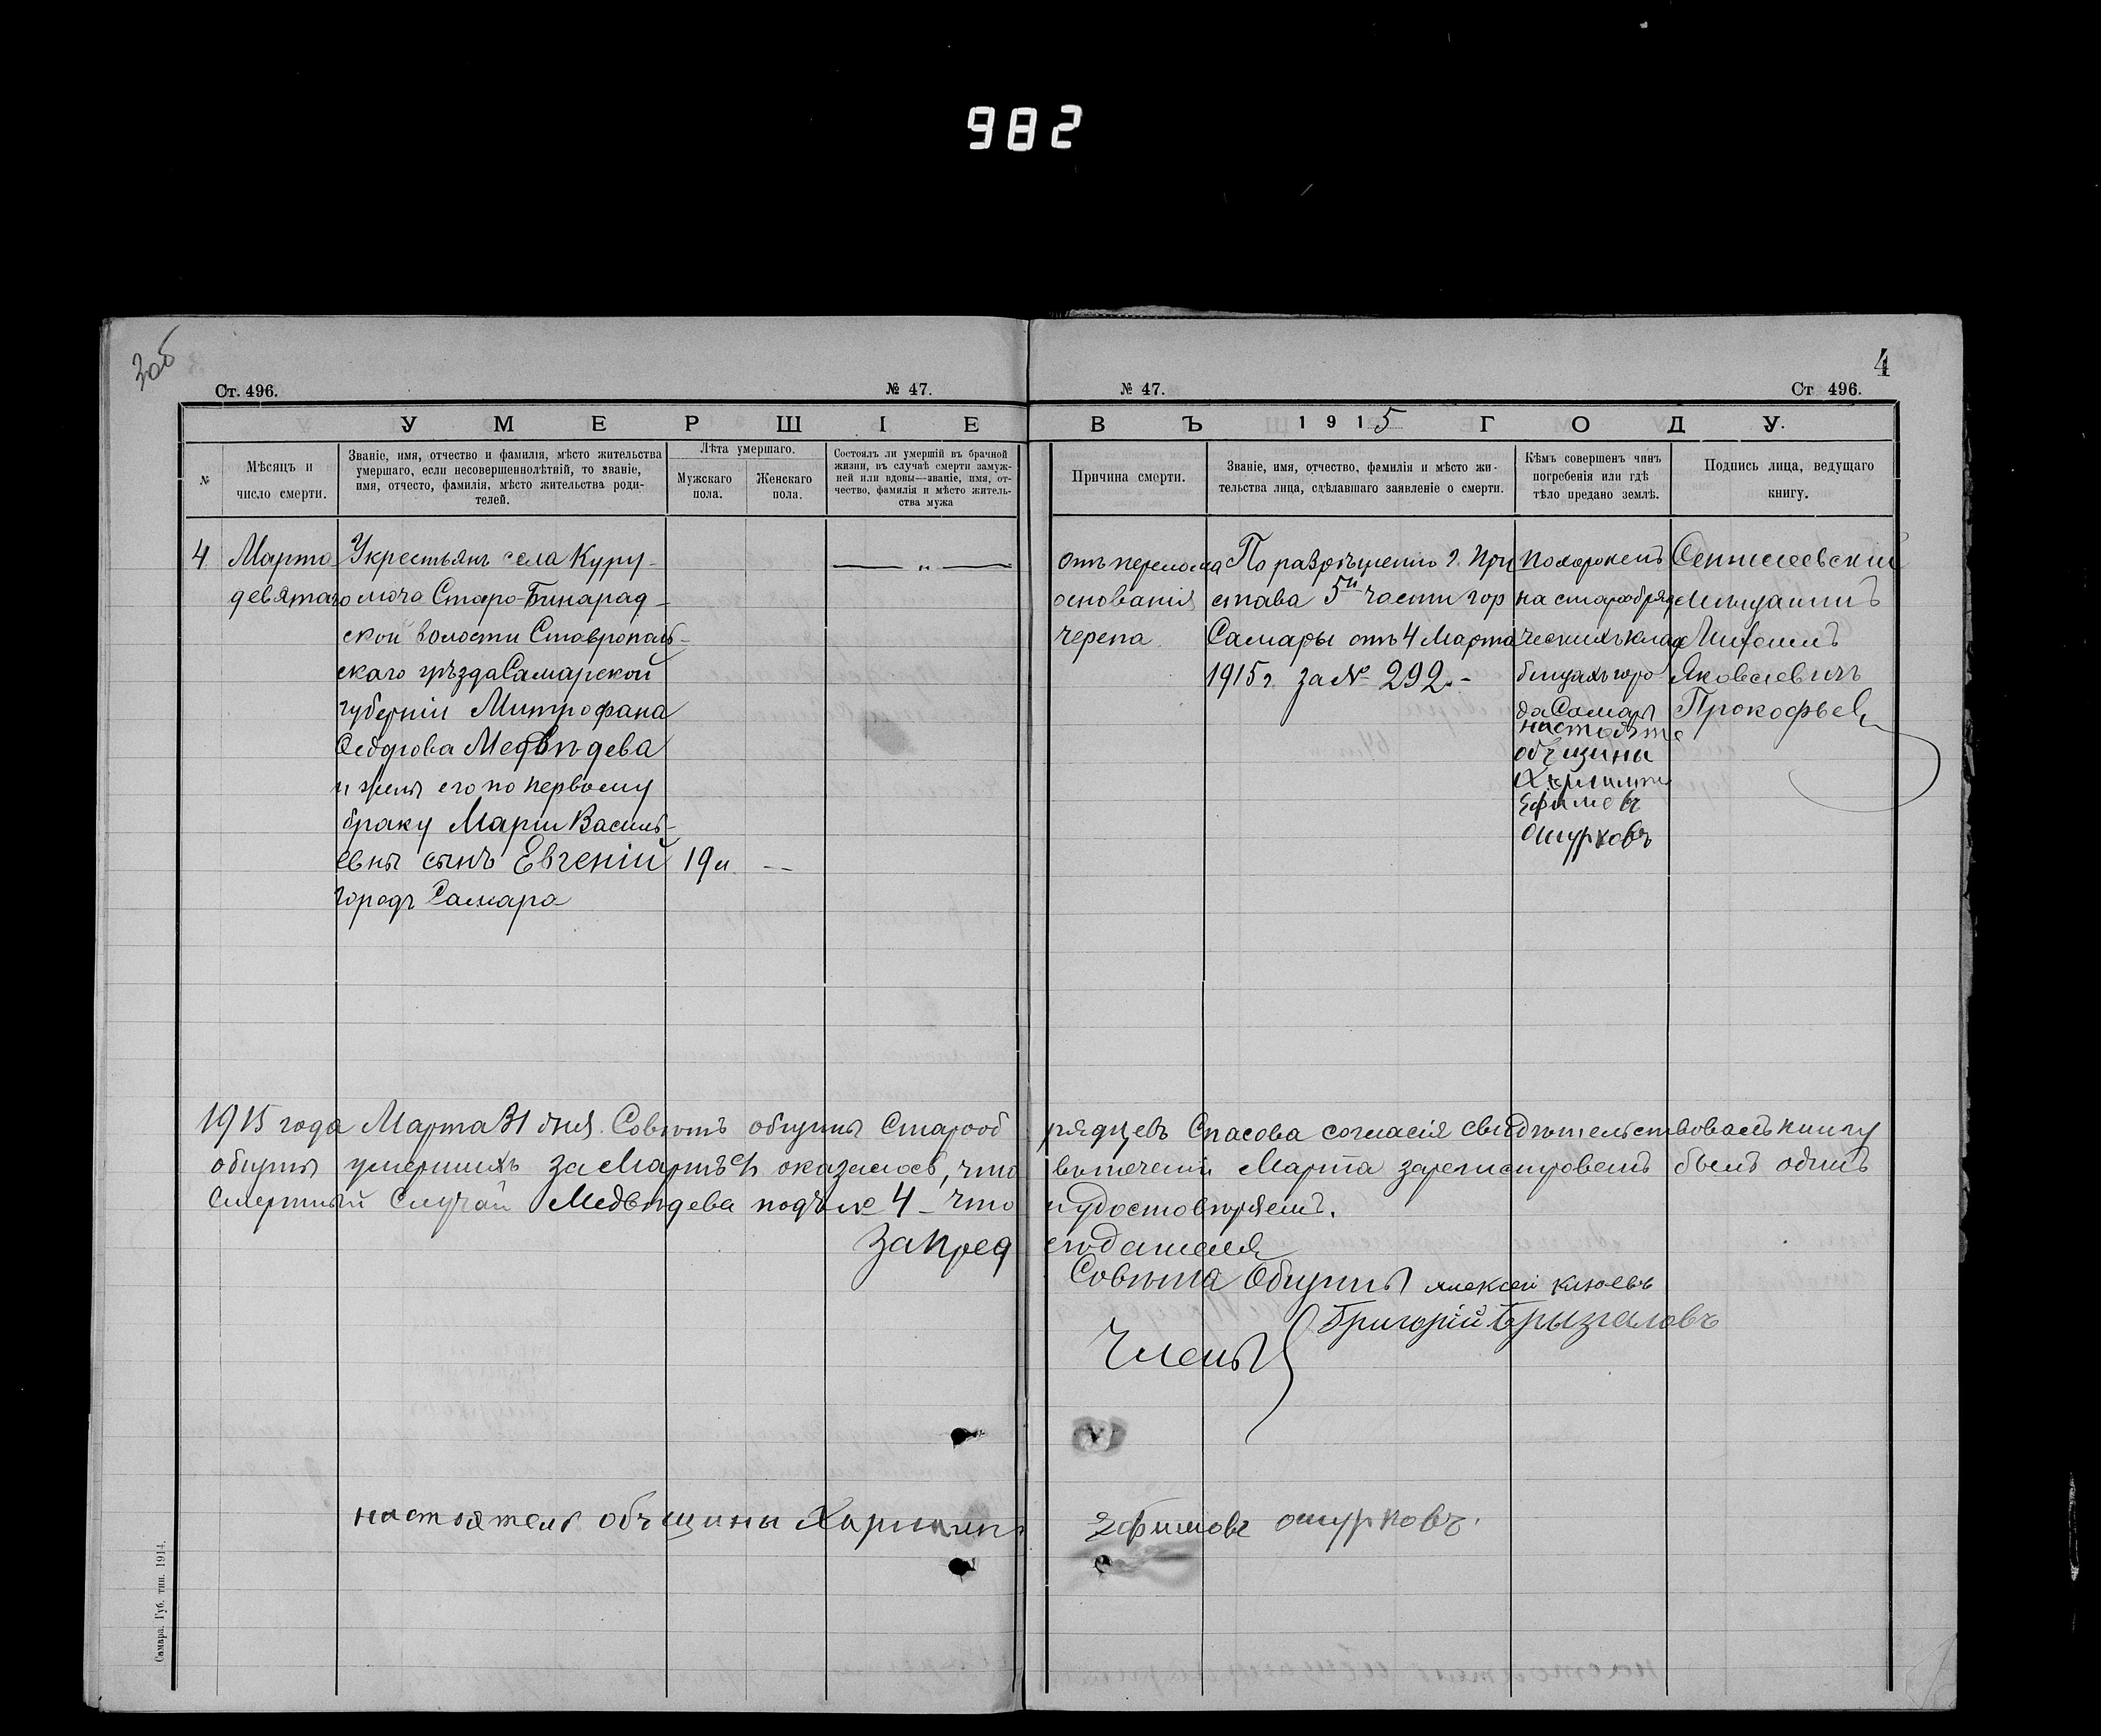 982
3об
4
Ст. 496.
№ 47.
№ 47.
Ст 496.
УМЕРШІЕ
ВЪ 1915 ГОДУ.
№
Мѣсяцъ и
число смерти.
Званіе, имя, отчество и фамилія, мѣсто жительства
умершаго, если несовершеннолѣтній, то званіе,
имя, отчесто, фамилія, мѣсто жительства роди-
телей.
Лѣта умершаго.
Мужскаго
пола.
Женскаго
пола.
Состоялъ ли умершій въ брачной
жизни, въ случаѣ смерти замуж-
ней или вдовы—званіе, имя, от-
чество, фамилія и мѣсто житель-
ства мужа
Причина смерти.
Званіе, имя, отчество, фамилія и мѣсто жи-
тельства лица, сдѣлавшаго заявленіе о смерти.
Кѣмъ совершенъ чинъ
погребенія или гдѣ
тѣло предано землѣ.
Подпись лица, ведущаго
книгу.
4.
Марта
девятаго
У крестьянъ села Куру-
моча Старо-Бинарад-
ской волости Ставрополь-
скаго уѣзда Самарской
губерніи Митрофана
Ѳедорова Медвѣдева
и жены его по первому
браку Маріи Василь-
евны сынъ Евгеній
городъ Самара
19 л. —
— „ —
отъ перелома
основанія
черепа
По разрѣшенію г. При
става 5й части гор
Самары отъ 4 Марта
1915 г. за № 292.-
похороненъ
на старообряд
ческихъ клад
бищахъ горо
да Самары
настояте
общины
Ефимовъ
Ошурковъ
мѣщанинъ
Яковлевичъ
Прокофьев
1915 года Марта 31 дня. Совѣтъ общины Старооб
рядцевъ Спасова согласія свидѣтельствовалъ книгу
общины умершихъ за Мартъ оказалось, что
въ теченіи Марта зарегистрованъ былъ одинъ
Смертный Случай Медвѣдева подъ № 4 - что
и удостовѣряемъ.
За Пред
сѣдателя
Совѣта Общины Алексей Клюевъ
Григорій Брызгаловъ
Члены
настоятель общины
Ефимовъ Ошурковъ.
Самара. Губ. тип. 1914.